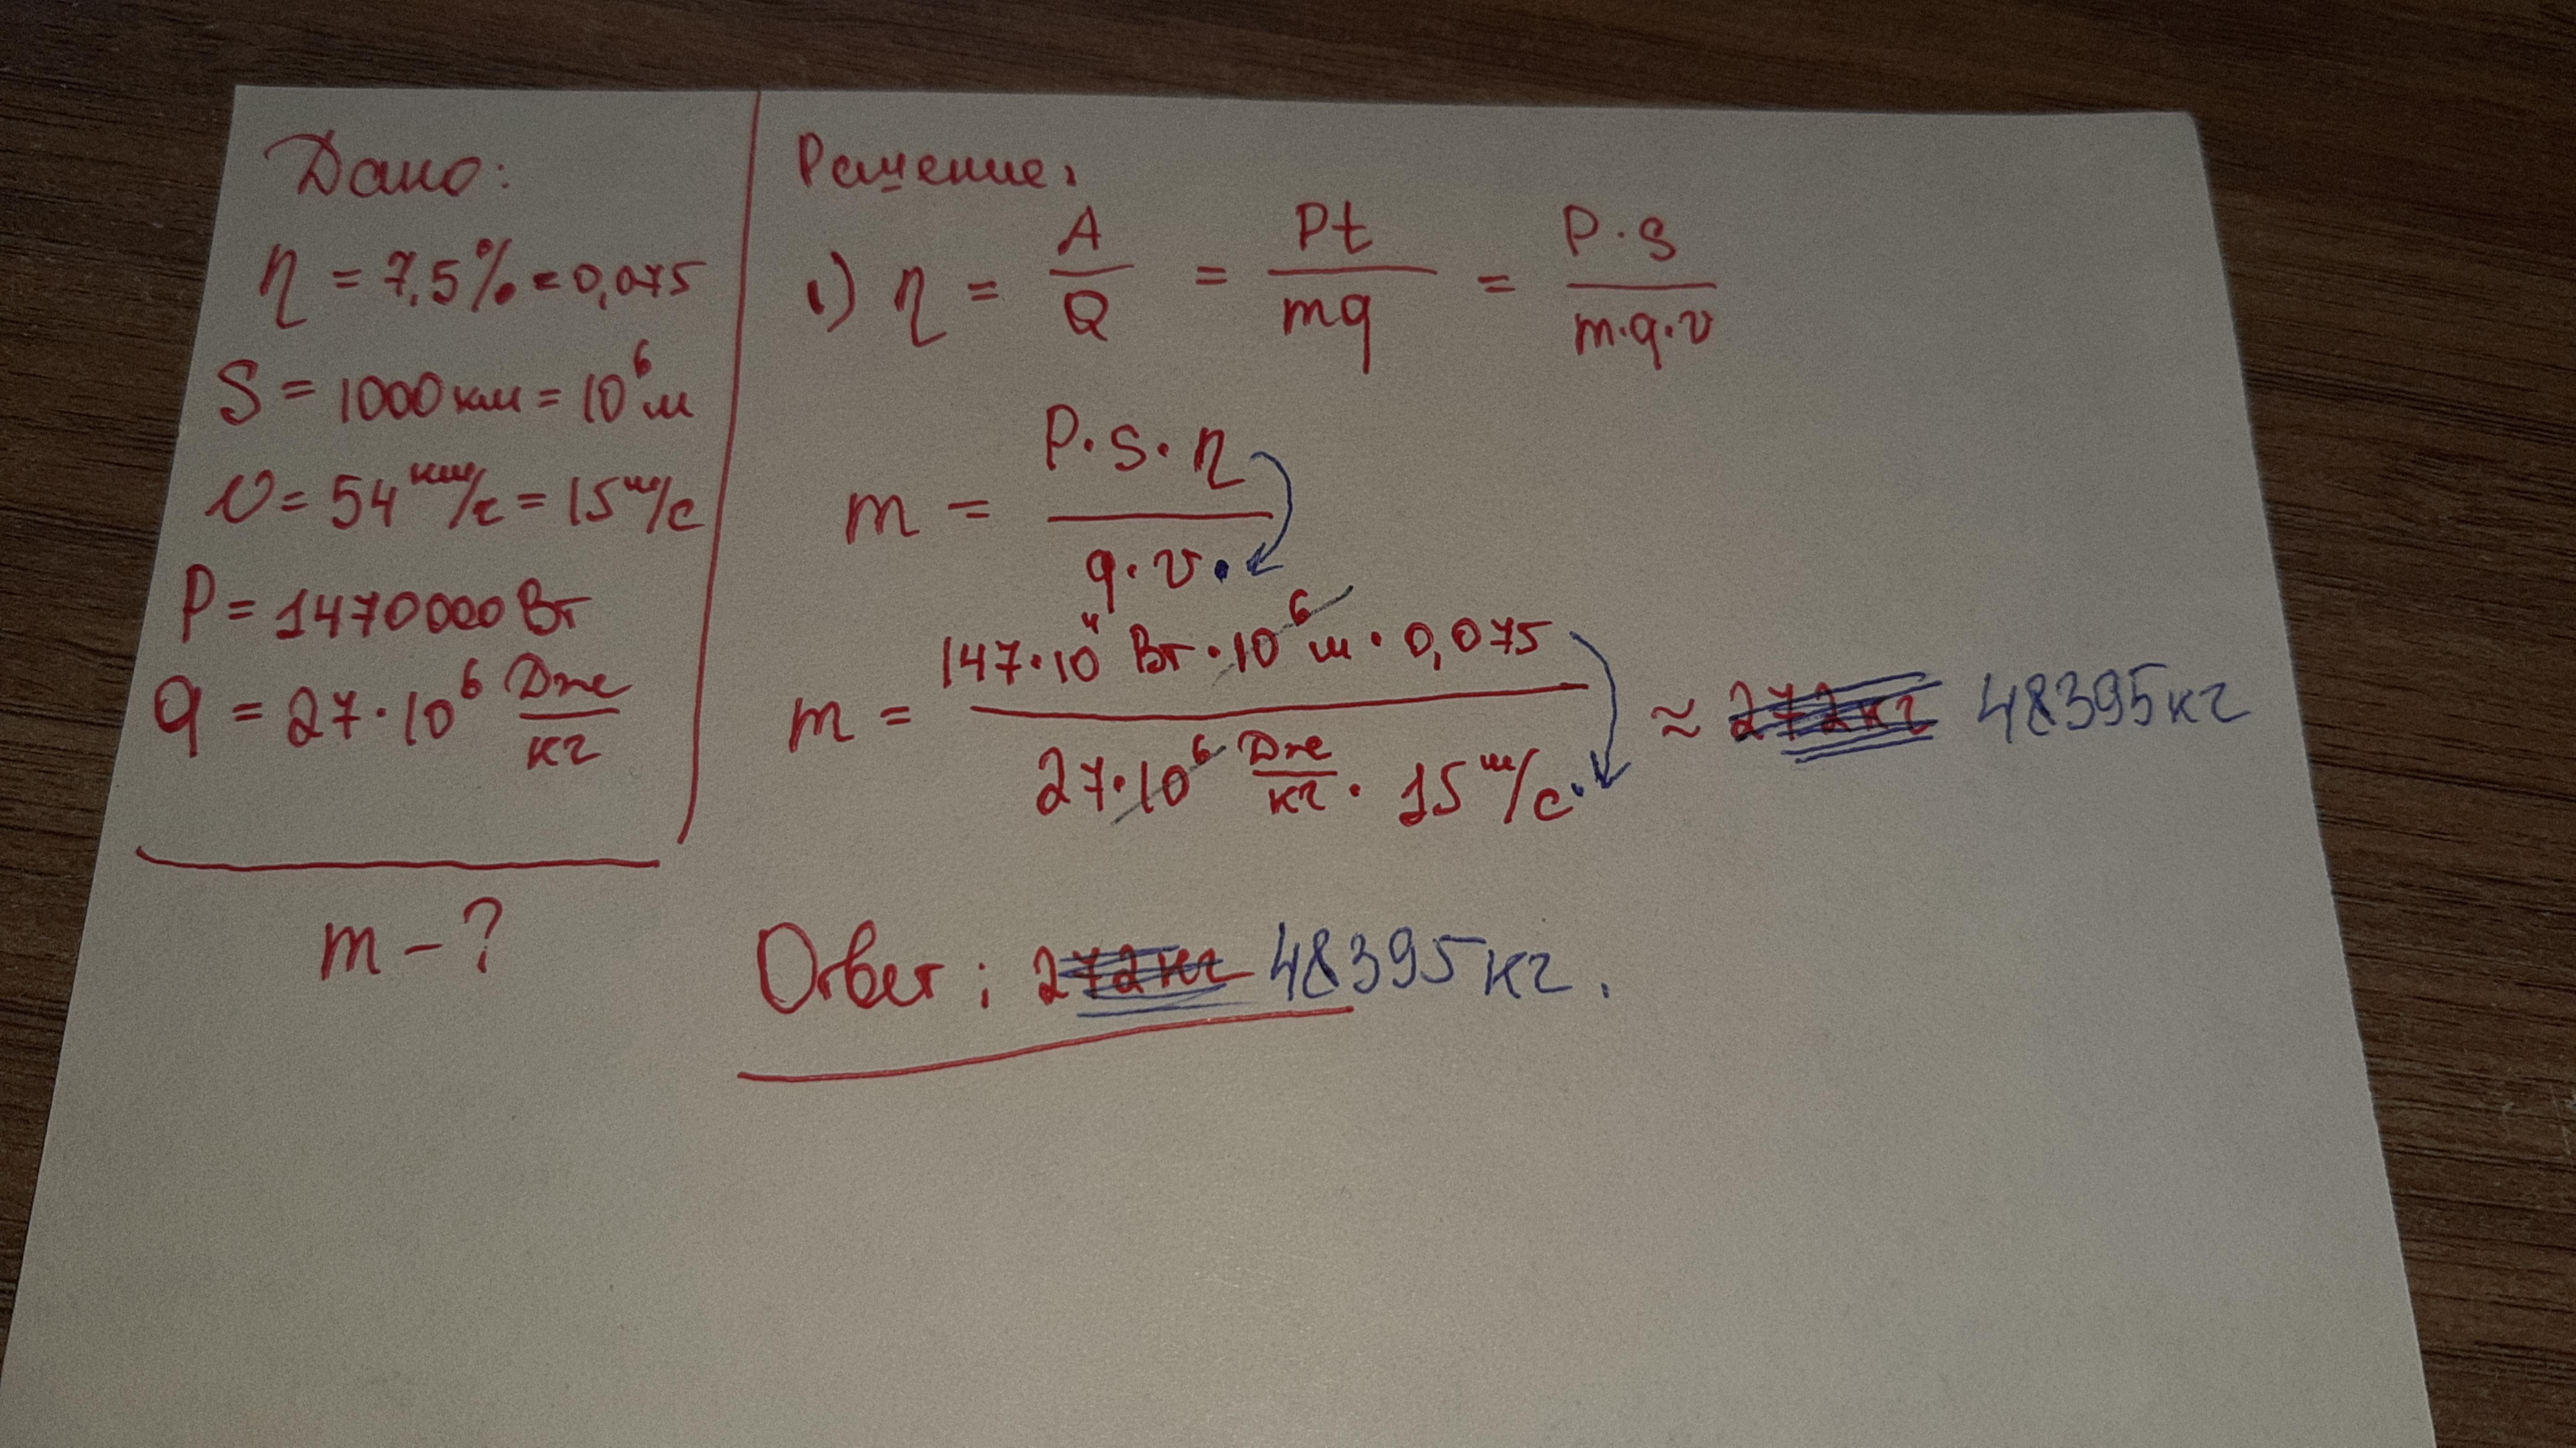 Дано:
η = 7,5% = 0,075
S = 1000 км = 10⁶ м
υ = 54 км/с = 15 м/с
P = 1470000 Вт
q = 27·10⁶ Дж/кг
m - ?
Решение:
1) η = A/Q = Pt/mq = P·S/m·q·υ
m = P·S·η/q·υ·
m = 147·10⁴ Вт·10⁶ м·0,075/27·10⁶ Дж/кг·15 м/с· ≈ 272кг 48395кг
Ответ: 272кг 48395кг.